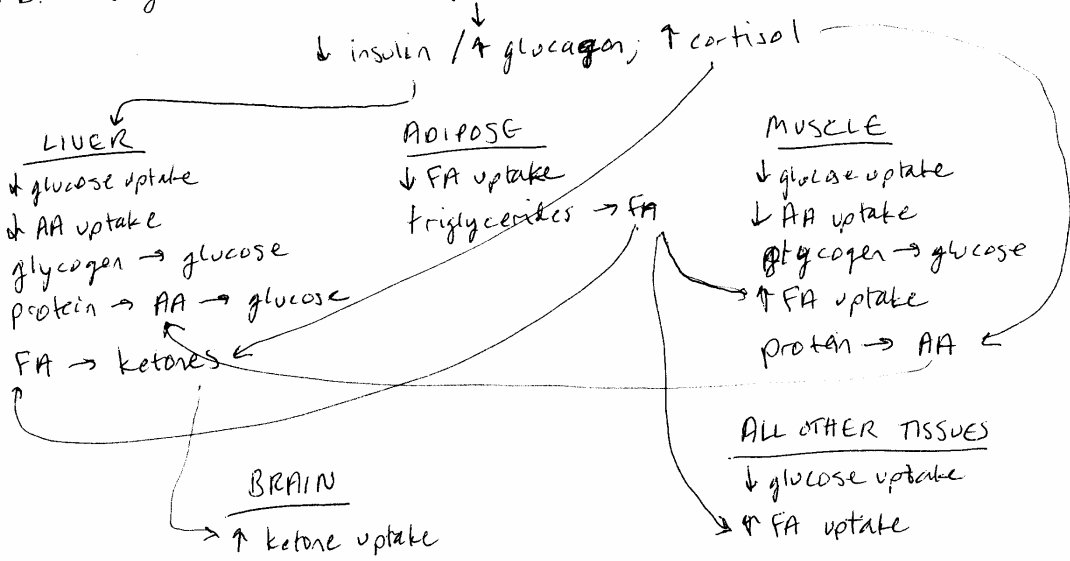 ↓ insulin / ↑ glucagon; ↑ cortisol
LIVER
↓ glucose uptake
↓ AA uptake
glycogen → glucose
protein → AA → glucose
FA → ketones
ADIPOSE
↓ FA uptake
triglycerides → FA
MUSCLE
↓ glucose uptake
↓ AA uptake
glycogen → glucose
↑ FA uptake
protein → AA
BRAIN
↑ ketone uptake
ALL OTHER TISSUES
↓ glucose uptake
↑ FA uptake